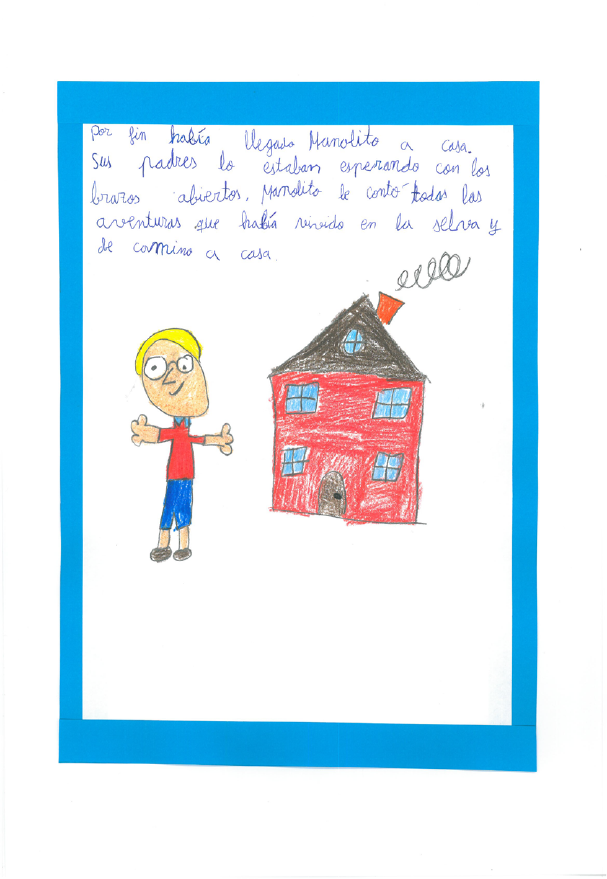 Por fin había llegado Manolito a casa.
Sus padres lo estaban esperando con los
brazos abiertos, Manolito le contó todas las
aventuras que había vivido en la selva y
de camino a casa.